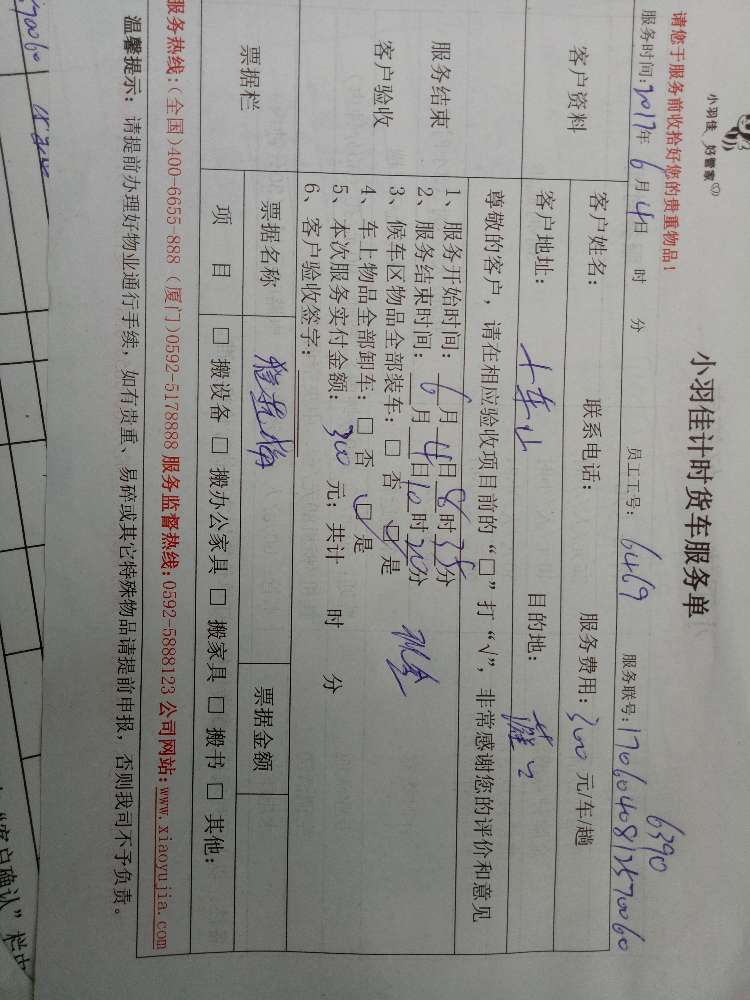 小羽佳 好管家
小羽佳计时货车服务单
请您于服务前收拾好您的贵重物品！
6390
服务时间：2017年6月4日 时 分 员工工号：6469 服务联号：17060408125570060
客户资料
客户姓名： 联系电话： 服务费用：300元/车/趟
客户地址： 目的地：
尊敬的客户，请在相应验收项目前的“□”打“√”，非常感谢您的评价和意见
服务结束
客户验收
1、服务开始时间：6月4日8时35分
2、服务结束时间：6月4日10时20分
3、候车区物品全部装车：□ 否 □ 是
4、车上物品全部卸车：□ 否 □ 是
5、本次服务实付金额：300元；共计 时 分
现金
6、客户验收签字：
票据栏
票据名称 票据金额
项 目 □ 搬设备 □ 搬办公家具 □ 搬家具 □ 搬书 □ 其他：
服务热线:(全国)400-6655-888（厦门)0592-5178888 服务监督热线:0592-5888123 公司网站:www.xiaoyujia.com
温馨提示：请提前办理好物业通行手续，如有贵重、易碎或其它特殊物品请提前申报，否则我司不予负责。
“客户确认”栏内